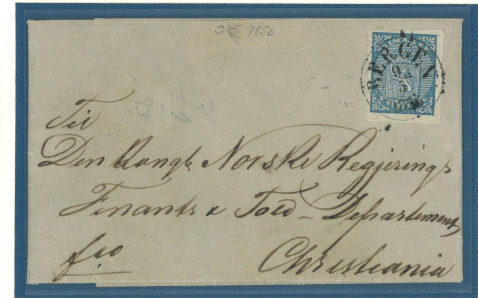 1856
BERGEN
Til
Den Kongl. Norske Regjerings
Finants & Told-Departement
fro
Christiania